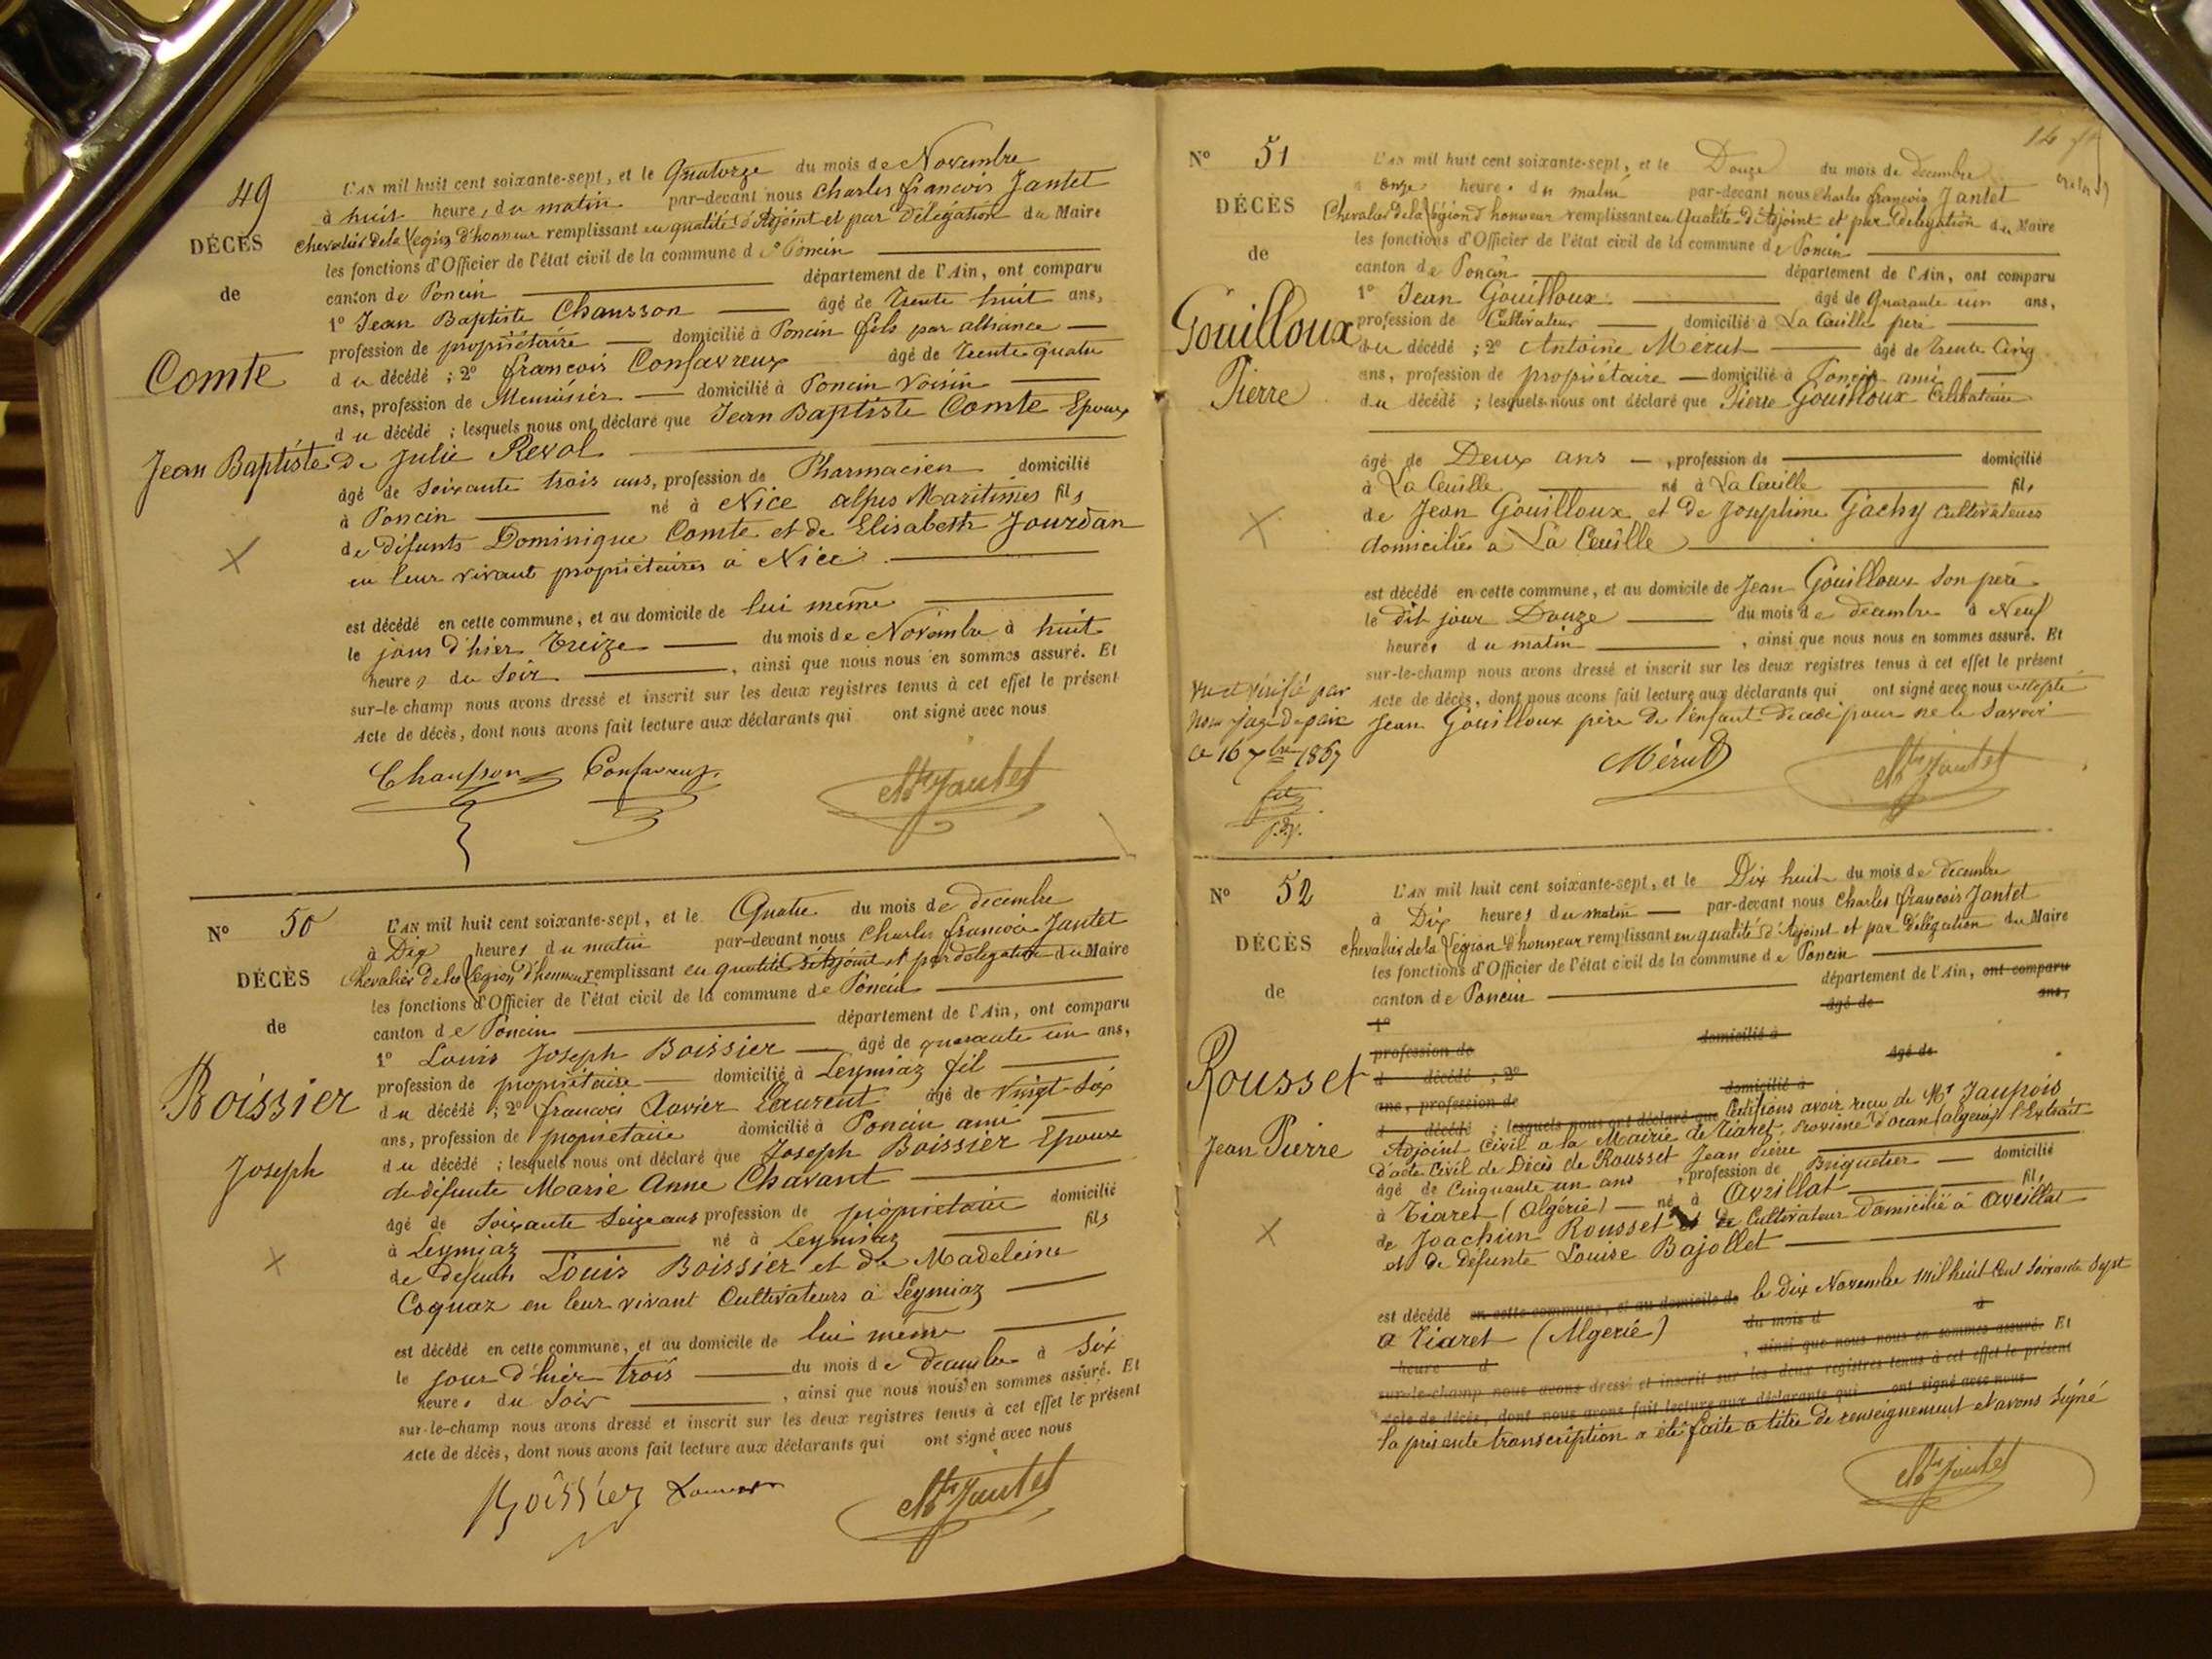 49
DÉCÈS
de
Comte
Jean Baptiste
L'AN mil huit cent soixante-sept, et le Quatorze du mois de Novembre
à huit heures du matin par-devant nous Charles françois Jantet
chevalier de la Légion d'honneur remplissant en qualité d'Adjoint et par Délégation du Maire
les fonctions d'Officier de l'état civil de la commune de Poncin
canton de Poncin département de l'Ain, ont comparu
1º Jean Baptiste Chausson âgé de Trente huit ans,
profession de propriétaire domicilié à Poncin fils par alliance
du décédé ; 2º françois Confavreux âgé de Trente quatre
ans, profession de Menuisier domicilié à Poncin Voisin
du décédé ; lesquels nous ont déclaré que Jean Baptiste Comte Epoux
de Julie Reval
âgé de soixante trois ans, profession de Pharmacien domicilié
à Poncin né à Nice alpes Maritimes fils
de défunts Dominique Comte et de Elisabeth Jourdan
en leur vivant propriétaires à Nice
est décédé en cette commune, et au domicile de lui même
le jour d'hier Treize du mois de Novembre à huit
heures du Soir , ainsi que nous nous en sommes assuré. Et
sur-le-champ nous avons dressé et inscrit sur les deux registres tenus à cet effet le présent
Acte de décès, dont nous avons fait lecture aux déclarants qui ont signé avec nous
Chausson Confavreux Jantet
Nº 50
DÉCÈS
de
Boissier
Joseph
L'AN mil huit cent soixante-sept, et le Quatre du mois de decembre
à Dix heures du matin par-devant nous Charles françois Jantet
Chevalier de la Légion d'honneur remplissant en qualité d'Adjoint et par délégation du Maire
les fonctions d'Officier de l'état civil de la commune de Poncin
canton de Poncin département de l'Ain, ont comparu
1º Louis Joseph Boissier âgé de quarante un ans,
profession de propriétaire domicilié à Leymiaz fil
du décédé ; 2º françois Xavier Laurent âgé de Vingt Six
ans, profession de propriétaire domicilié à Poncin ami
du décédé ; lesquels nous ont déclaré que Joseph Boissier Epoux
de défunte Marie Anne Chavant
âgé de Soixante Seize ans profession de propriétaire domicilié
à Leymiaz né à Leymiaz fils
de defunts Louis Boissier et de Madeleine
Coquaz en leur vivant Cultivateurs à Leymiaz
est décédé en cette commune, et au domicile de lui même
le jour d'hier trois du mois de decembre à Six
heures du Soir , ainsi que nous nous en sommes assuré. Et
sur-le-champ nous avons dressé et inscrit sur les deux registres tenus à cet effet le présent
Acte de décès, dont nous avons fait lecture aux déclarants qui ont signé avec nous
Boissier Laurent Jantet
Nº 51
DÉCÈS
de
Gouilloux
Pierre
L'AN mil huit cent soixante-sept, et le Douze du mois de decembre
à onze heures du matin par-devant nous Charles françois Jantet
Chevalier de la Légion d'honneur remplissant en Qualité d'Adjoint et par Délégation du Maire
les fonctions d'Officier de l'état civil de la commune de Poncin
canton de Poncin département de l'Ain, ont comparu
1º Jean Gouilloux âgé de Quarante un ans,
profession de Cultivateur domicilié à La Cueille père
du décédé ; 2º Antoine Mérut âgé de trente Cinq
ans, profession de propriétaire domicilié à Poncin ami
du décédé ; lesquels nous ont déclaré que Pierre Gouilloux Célibataire
âgé de Deux ans , profession de domicilié
à La Cueille né à La Cueille fils
de Jean Gouilloux et de Josephine Gachy Cultivateurs
domiciliés à La Cueille
est décédé en cette commune, et au domicile de Jean Gouilloux Son père
le dit jour Douze du mois de decembre à Neuf
heures du matin , ainsi que nous nous en sommes assuré. Et
sur-le-champ nous avons dressé et inscrit sur les deux registres tenus à cet effet le présent
Acte de décès, dont nous avons fait lecture aux déclarants qui ont signé avec nous excepté
Jean Gouilloux père de l'enfant décédé pour ne le Savoir
Vu et vérifié par
nous juge de paix
ce 16 7bre 1867
Mérut Jantet
Nº 52
DÉCÈS
de
Rousset
Jean Pierre
L'AN mil huit cent soixante-sept, et le Dix huit du mois de decembre
à Dix heures du matin par-devant nous Charles françois Jantet
chevalier de la Légion d'honneur remplissant en qualité d'Adjoint et par Délégation du Maire
les fonctions d'Officier de l'état civil de la commune de Poncin
canton de Poncin département de l'Ain, ont comparu
1º âgé de ans,
profession de domicilié à
d décédé ; 2º âgé de
ans, profession de domicilié à
d décédé ; lesquels nous ont déclaré que Certifions avoir reçu de Mr Jaupois
Adjoint Civil a la Mairie de Tiaret, Province d'oran (algerie) l'Extrait
d'acte Civil de Décès de Rousset Jean Pierre
âgé de Cinquante un ans , profession de Briquetier domicilié
à Tiaret (Algérie) né à Aveillat fils
de Joachim Rousset Cultivateur domicilié à Aveillat
et de Défunte Louise Bajollet
est décédé en cette commune, et au domicile de le dix Novembre mil huit Cent Soixante Sept
a Tiaret (Algerie) du mois d à
heure d , ainsi que nous nous en sommes assuré. Et
sur-le-champ nous avons dressé et inscrit sur les deux registres tenus à cet effet le présent
Acte de décès, dont nous avons fait lecture aux déclarants qui ont signé avec nous
La présente transcription a été faite a titre de renseignement et avons Signé
Jantet